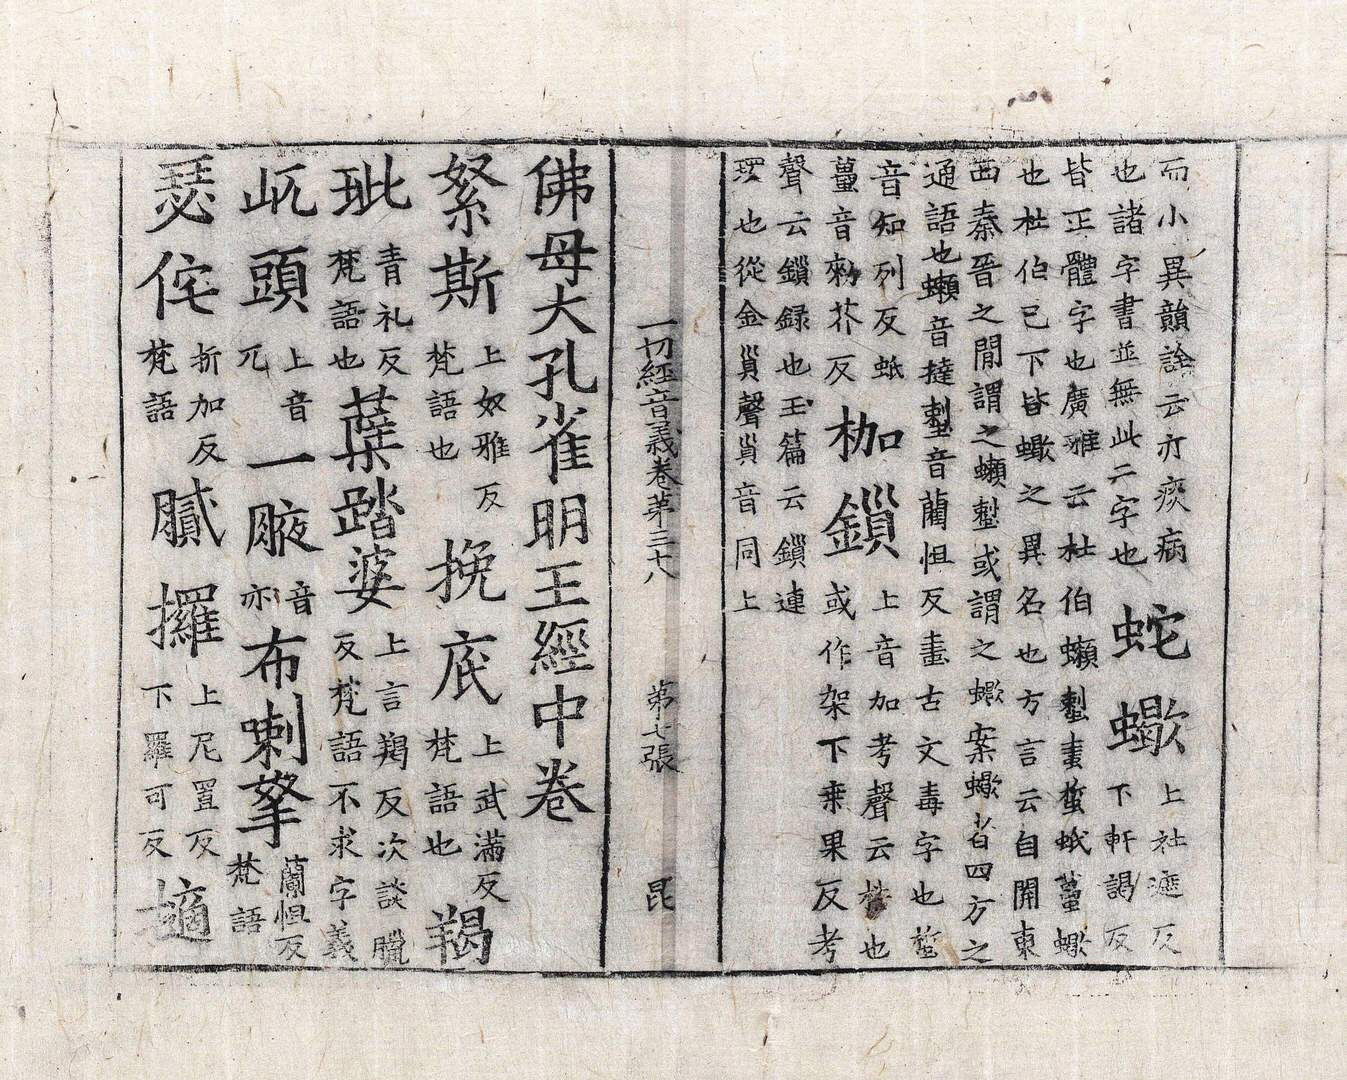 而小異韻詮云亦痰病
也諸字書並無此二字也
蛇蠍
上社遮反
下軒謁反
皆正體字也廣雅云杜伯蠍蜇蠆蠍
也杜伯已下皆蠍之異名也方言云自關東
西秦晉之閒謂之或謂之蠍案蠍省四方之
通語也音撻音蘭怛反古文毒字也
音知列反蚳
蠆音勑芥反
枷鎖
上音加考聲云也
或作架下桒果反考
聲云鎖録也玉篇云鎖連
環也從金𧴪聲𧴪音同上
一切經音義卷第三十八 第七張 昆
佛母大孔雀明王經中卷
緊斯
上奴雅反
梵語也
挽底
上武滿反
梵語也
羯
玭
青礼反
梵語也
蘗踏婆
上言羯反次談臘
反梵語不求字義
岏頭
上音
兀
一腋
音
亦
布喇拏
蘭怛反
梵語
瑟侘
折加反
梵語
膩攞
上尼置反
下羅可反
擿